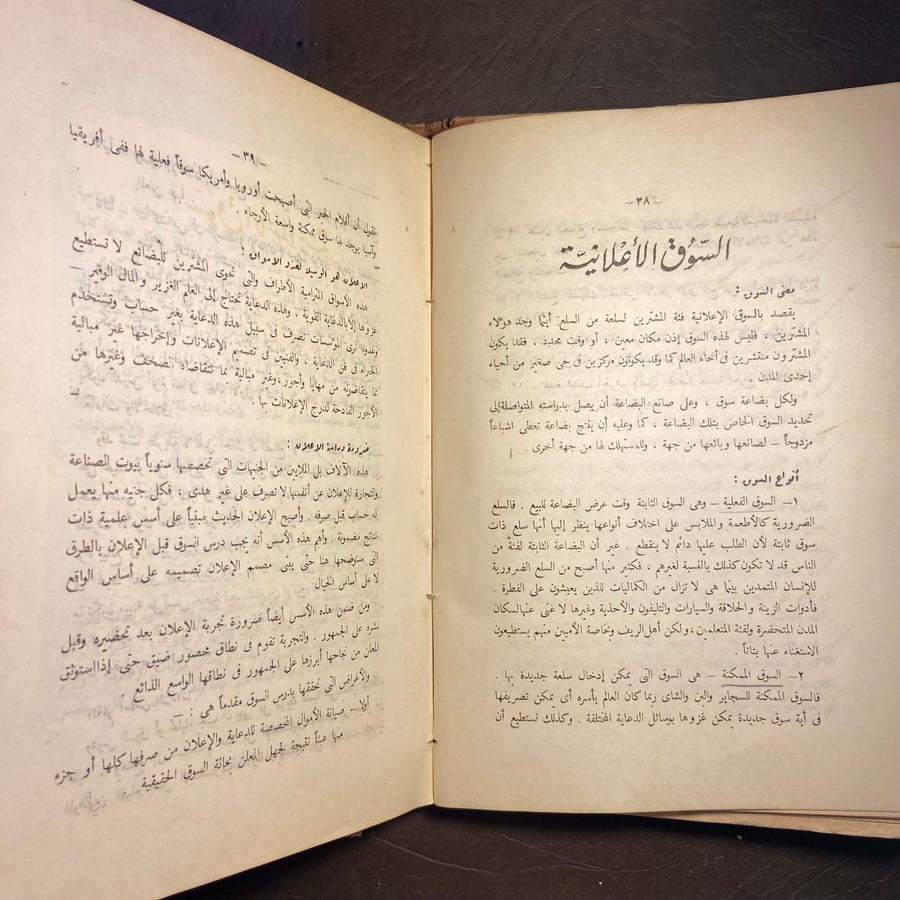 — ٣٨ —
السّوُق الأعْلانيَّة
معنى السوق :
يقصد بالسوق الإعلانية فئة المشترين لسلعة من السلع أينما وجد هؤلاء
المشترين ، فليس لهذه السوق إذن مكان معين ، أو وقت محدد . فقد يكون
المشترون منتشرين فى أنحاء العالم كما وقد يكونون مركزين فى حى صغير من أحياء
إحدى المدن .
ولكل بضاعة سوق ، وعلى صانع البضاعة أن يصل بدراسته المتواصلة إلى
تحديد السوق الخاص بتلك البضاعة ، كما وعليه أن ينتج بضاعة تعطى اشباعاً
مزدوجاً — لصانعها وبائعها من جهة ، وللمستهلك لها من جهة أخرى .
أنواع السوق :
١ — السوق الفعلية — وهى السوق الثابتة وقت عرض البضاعة للبيع . فالسلع
الضرورية كالأطعمة والملابس على اختلاف أنواعها ينظر إليها أنها سلع ذات
سوق ثابتة لأن الطلب عليها دائم لا ينقطع . غير أن البضاعة الثابتة لفئة من
الناس قد لا تكون كذلك بالنسبة لغيرهم ، فكثير منها أصبح من السلع الضرورية
للإنسان المتمدين بينما هى لا تزال من الكماليات للذين يعيشون على الفطرة .
فأدوات الزينة والحلاقة والسيارات والتليفون والأحذية وغيرها لا غنى عنها لسكان
المدن المتحضرة ولفئة المتعلمين ، ولكن أهل الريف وبخاصة الأميين منهم يستطيعون
الاستغناء عنها بتاتاً .
٢ — السوق الممكنة — هى السوق التى يمكن إدخال سلعة جديدة بها .
فالسوق الممكنة للسجاير والبن والشاى ربما كان العالم بأسره أى يمكن تصريفها
فى أية سوق جديدة يمكن غزوها بوسائل الدعاية المختلفة . وكذلك نستطيع أن
— ٣٩ —
نقول أن أقلام الحبر التى أصبحت أوروبا وأمريكا سوقاً فعلية لها ففى أفريقيا
وآسيا يوجد لها سوق ممكنة واسعة الأرجاء .
الاعلان هو الوسيلة لغزو الأسواق :
هذه الأسواق المترامية الأطراف والتى تحوى المشترين للبضائع لا تستطيع
غزوها إلا بالدعاية القوية ، وهذه الدعاية تحتاج إلى العلم الغزير والمال الوفير —
وغدونا نرى المؤسسات تصرف فى سبيل هذه الدعاية بغير حساب وتستخدم
الخبراء فى فن الدعاية ، والفنيين فى تصميم الإعلانات وإخراجها غير مبالية
بما يتقاضونه من مهايا وأجور ، وغير مبالية بما تتقاضاه الصحف وغيرها من
الأجور الفادحة لدرج الإعلانات بها .
ضرورة دراسة الاعلان :
هذه الآلاف بل الملايين من الجنيهات التى تخصصها سنوياً بيوت الصناعة
والتجارة للإعلان عن أنفسها لا تصرف على غير هدى ، فكل جنيه منها يعمل
له حساب قبل صرفه . وأصبح الإعلان الحديث مبنياً على أسس علمية ذات
نتائج مضمونة . وأهم هذه الأسس أنه يجب درس السوق قبل الإعلان بالطرق
التى سنوضحها هنا حتى يبنى مصمم الإعلان تصميمه على أساس الواقع
لا على أساس الخيال .
ومن ضمن هذه الأسس أيضاً ضرورة تجربة الإعلان بعد تحضيره وقبل
نشره على الجمهور . والتجربة تقوم فى نطاق محصور ضيق حتى إذا استوثق
المعلن من نجاحها أبرزها على الجمهور فى نطاقها الواسع الذائع .
والأغراض التى نحققها بدرس السوق مقدماً هى : —
أولا — صيانة الأموال المخصصة للدعاية والإعلان من صرفها كلها أو جزء
منها عبثاً نتيجة لجهل المعلن بحالة السوق الحقيقية